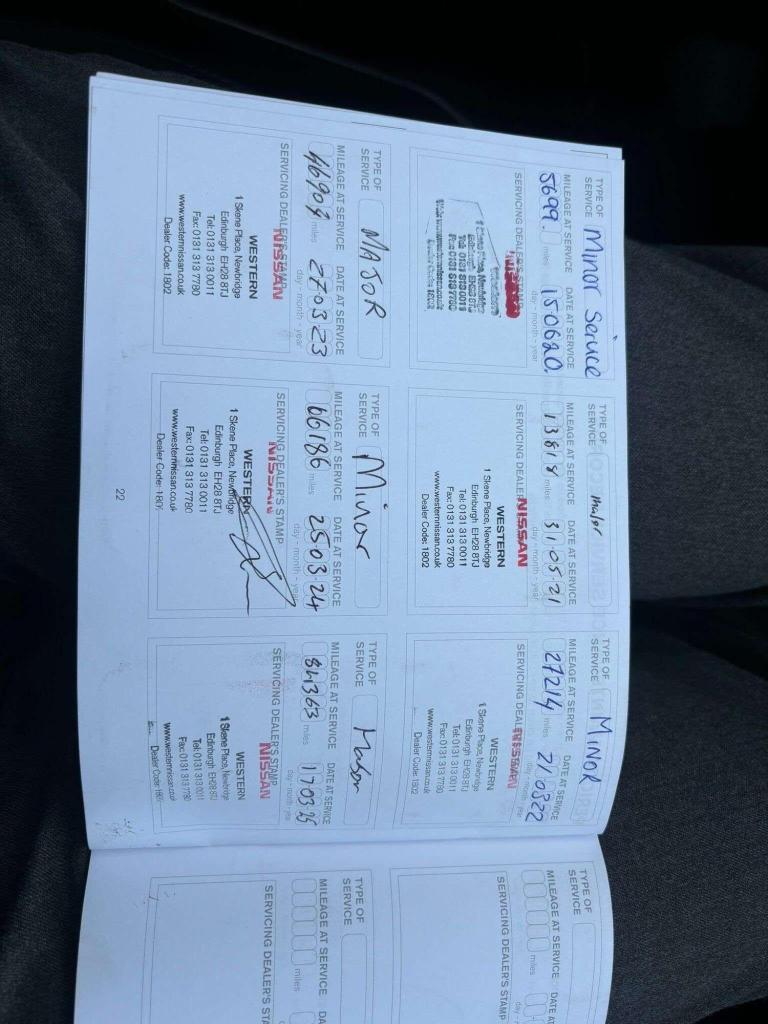 TYPE OF SERVICE Minor Service
MILEAGE AT SERVICE DATE AT SERVICE
5699. miles 150620.
day - month - year
SERVICING DEALER'S STAMP
NISSAN
Western
1 Skene Place, Newbridge
Edinburgh EH28 8TJ
Tel: 0131 313 0011
Fax: 0131 313 7780
www.westernnissan.co.uk
Dealer Code: 1802
TYPE OF SERVICE Major
MILEAGE AT SERVICE DATE AT SERVICE
13818 miles 310521
day - month - year
SERVICING DEALER'S STAMP
NISSAN
WESTERN
1 Skene Place, Newbridge
Edinburgh EH28 8TJ
Tel: 0131 313 0011
Fax: 0131 313 7780
www.westernnissan.co.uk
Dealer Code: 1802
TYPE OF SERVICE MINOR
MILEAGE AT SERVICE DATE AT SERVICE
27214 miles 210322
day - month - year
SERVICING DEALER'S STAMP
NISSAN
WESTERN
1 Skene Place, Newbridge
Edinburgh EH28 8TJ
Tel: 0131 313 0011
Fax: 0131 313 7780
www.westernnissan.co.uk
Dealer Code: 1802
TYPE OF SERVICE
MILEAGE AT SERVICE DATE AT
miles day
SERVICING DEALER'S STAMP
TYPE OF SERVICE MAJOR
MILEAGE AT SERVICE DATE AT SERVICE
46909 miles 270323
day - month - year
SERVICING DEALER'S STAMP
NISSAN
WESTERN
1 Skene Place, Newbridge
Edinburgh EH28 8TJ
Tel: 0131 313 0011
Fax: 0131 313 7780
www.westernnissan.co.uk
Dealer Code: 1802
TYPE OF SERVICE Minor
MILEAGE AT SERVICE DATE AT SERVICE
66186 miles 250324
day - month - year
SERVICING DEALER'S STAMP
NISSAN
WESTERN
1 Skene Place, Newbridge
Edinburgh EH28 8TJ
Tel: 0131 313 0011
Fax: 0131 313 7780
www.westernnissan.co.uk
Dealer Code: 180
TYPE OF SERVICE Major
MILEAGE AT SERVICE DATE AT SERVICE
84363 miles 170325
day - month - year
SERVICING DEALER'S STAMP
NISSAN
WESTERN
1 Skene Place, Newbridge
Edinburgh EH28 8TJ
Tel: 0131 313 0011
Fax: 0131 313 7780
www.westernnissan.co.uk
Dealer Code: 180
TYPE OF SERVICE
MILEAGE AT SERVICE DATE AT
miles
SERVICING DEALER'S STA
22